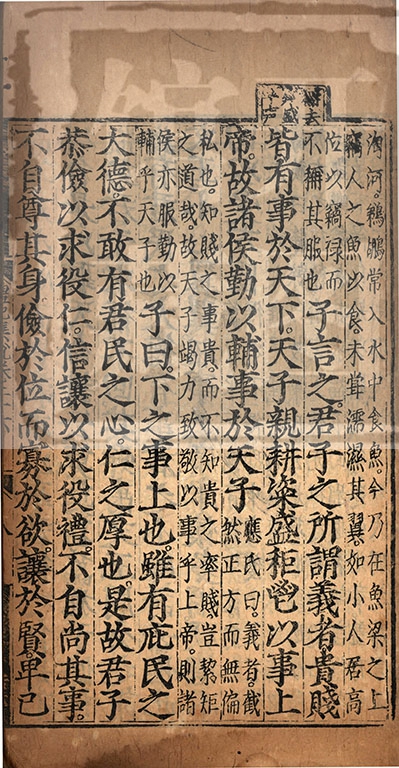 河。鵜鶘常入水中食魚。今乃在魚梁之上
竊人之魚以食。未嘗濡濕其翼。如小人居高
位以竊禄而
不稱其服也
子言之。君子之所謂義者。貴賤
皆有事於天下。天子親耕粢盛秬鬯以事上
帝。故諸侯勤以輔事於天子
應氏曰。義者截
然正方而無偏
私也。知賤之事貴。而不知貴之率賤。豈絜矩
之道哉。故天子竭力致敬以事乎上帝。則諸
侯亦服勤以
輔乎天子也
子曰。下之事上也。雖有庇民之
大德。不敢有君民之心。仁之厚也。是故君子
恭儉以求役仁。信讓以求役禮。不自尚其事。
不自尊其身。儉於位而寡於欲。讓於賢。卑己